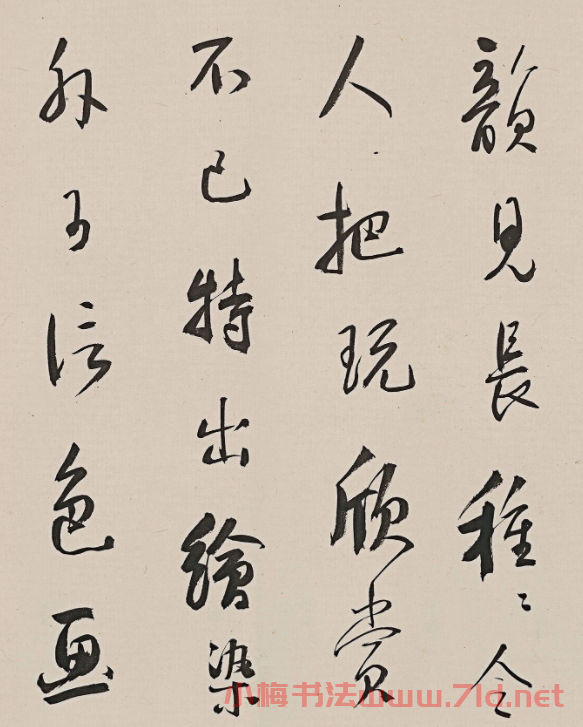 韻見長種〻令
人把玩欣賞
不已特出繪染
外可信色画
小梅书法www.7ld.net